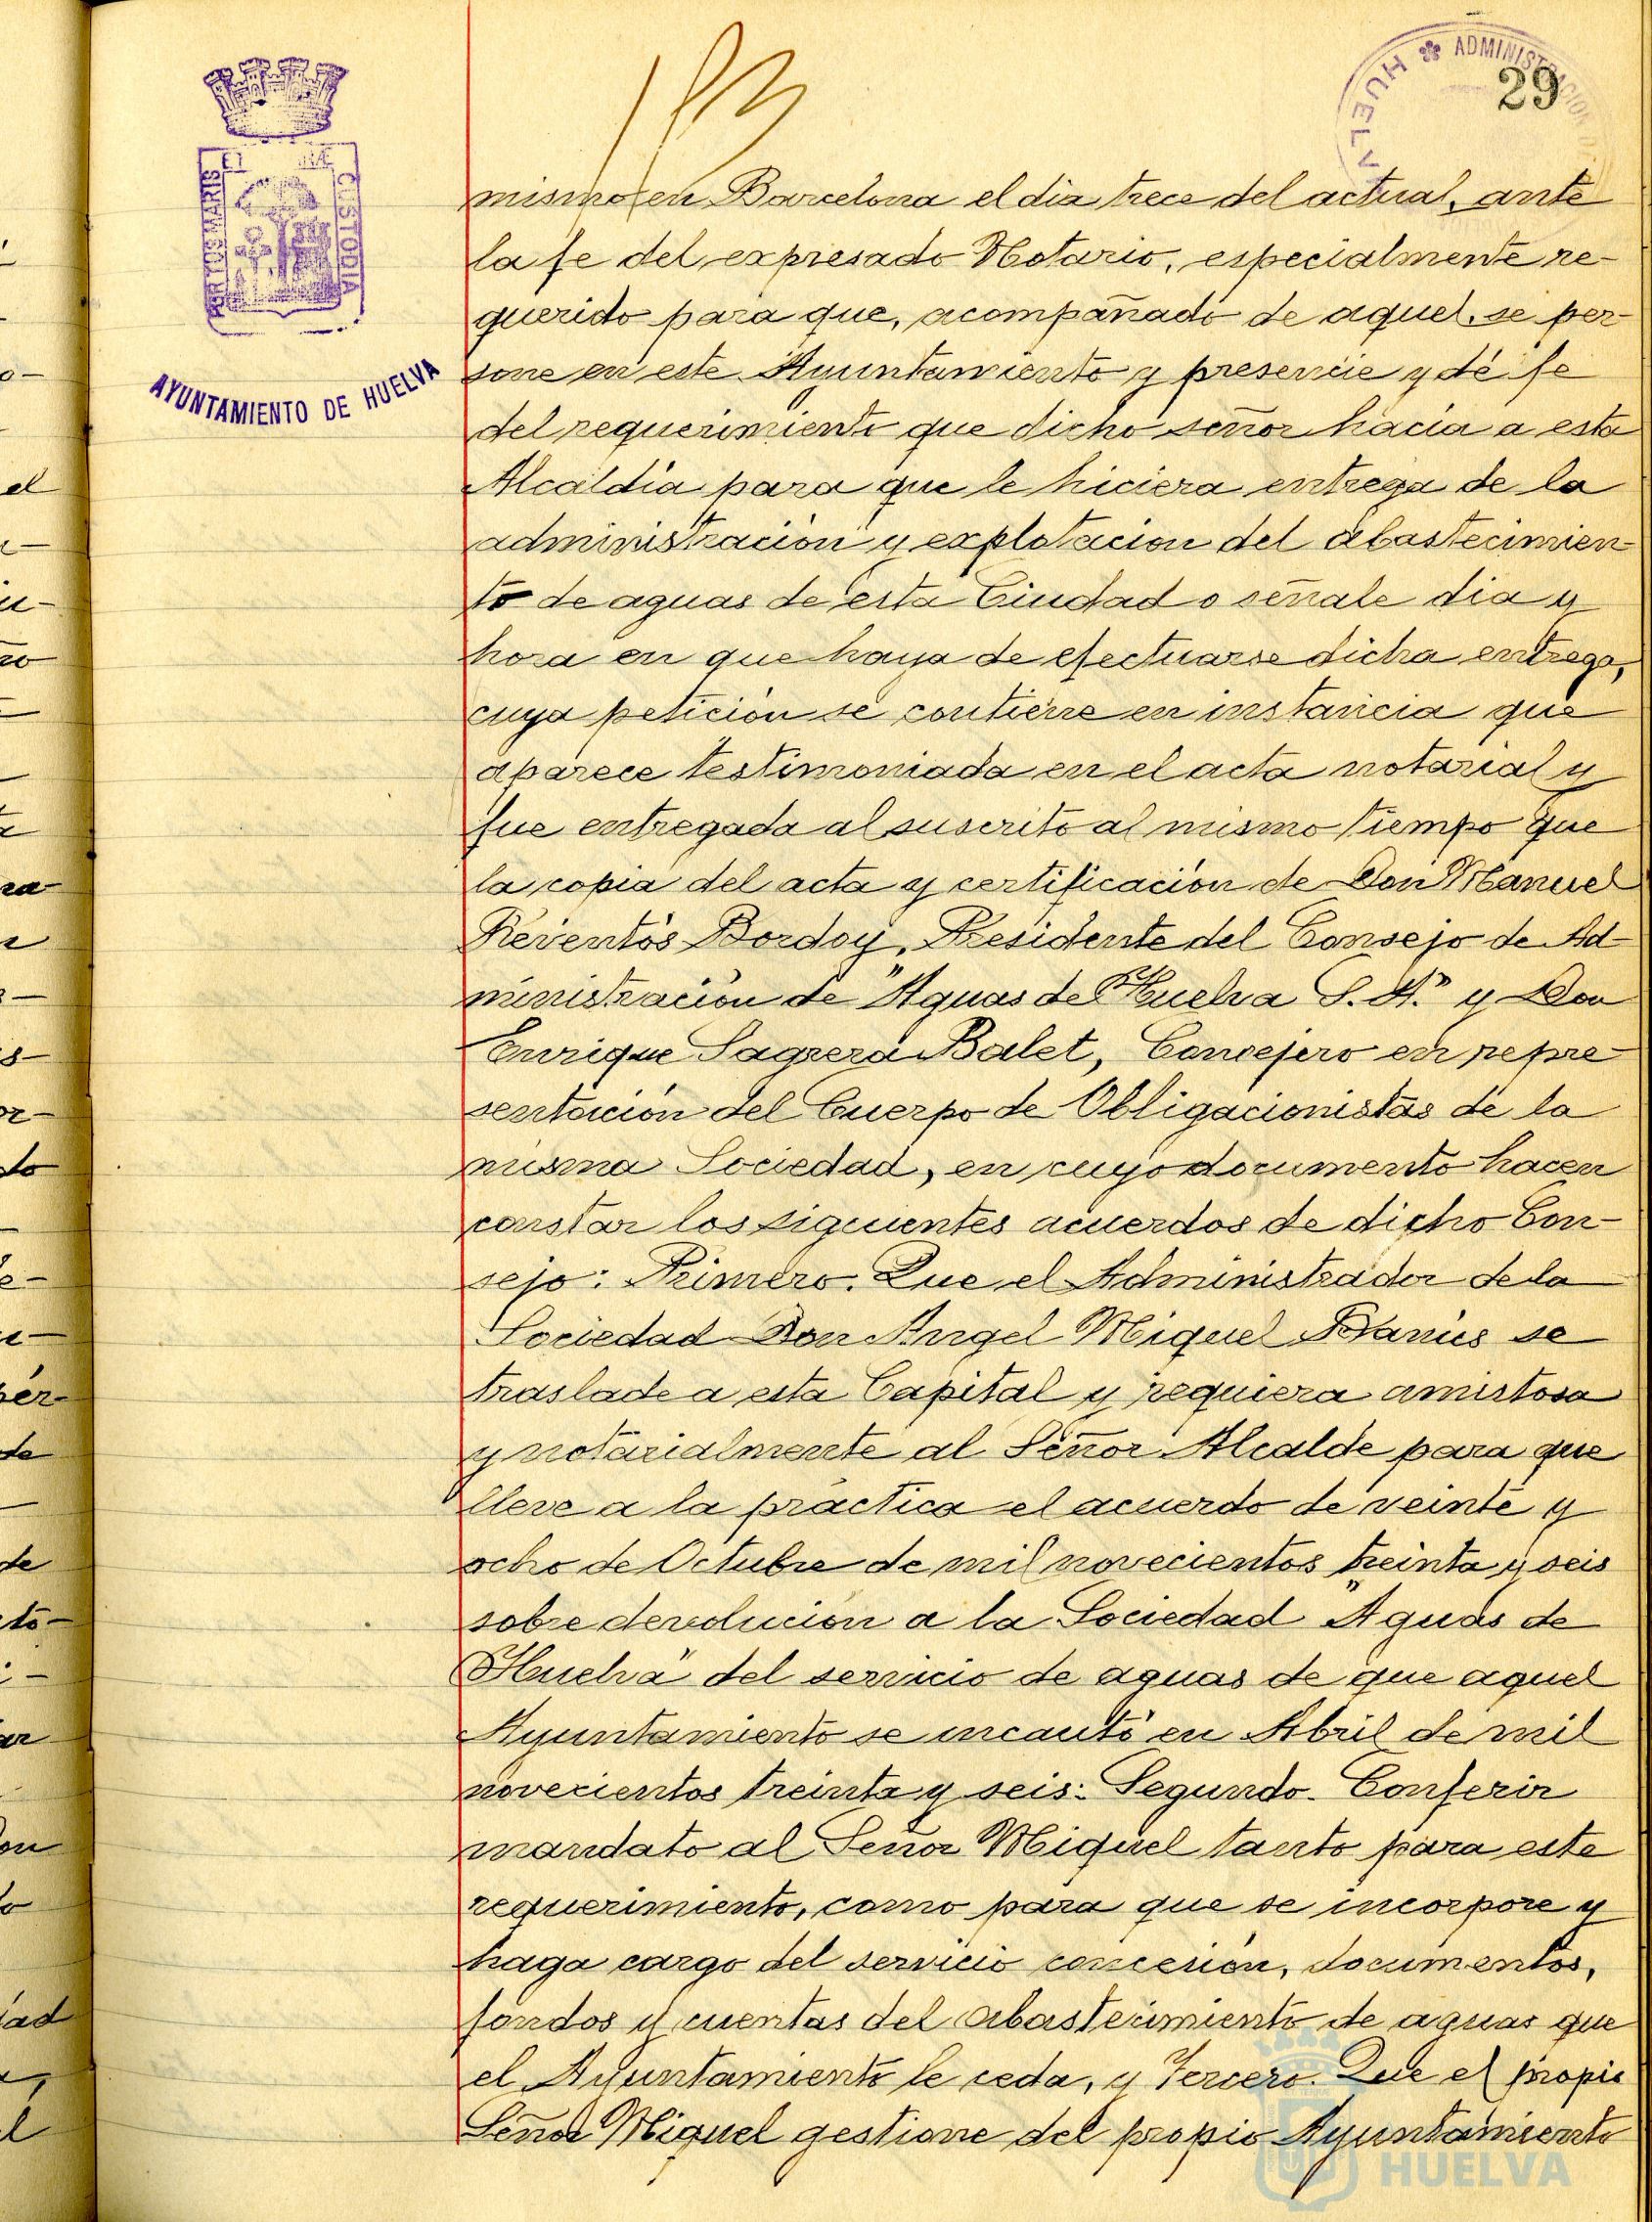 29
ADMINISTRACION
HUELV
PORTUS MARIS ET
CUSTODIA
AYUNTAMIENTO DE HUELVA
mismo en Barcelona el dia trece del actual, ante
la fe del expresado Notario, especialmente re-
querido para que, acompañado de aquel, se per-
sone en este Ayuntamiento y presencie y dé fe
del requerimiento que dicho señor hacia a esta
Alcaldía para que le hiciera entrega de la
administración y explotacion del abastecimien-
to de aguas de esta Ciudad o señale dia y
hora en que haya de efectuarse dicha entrega,
cuya petición se contiene en instancia que
aparece testimoniada en el acta notarial y
fue entregada al suscrito al mismo tiempo que
la copia del acta y certificación de Don Manuel
Reventós Bordoy, Presidente del Consejo de Ad-
ministración de "Aguas de Huelva S. A." y Don
Enrique Sagrera Balet, Consejero en repre-
sentación del Cuerpo de Obligacionistas de la
misma Sociedad, en cuyo documento hacen
constar los siguientes acuerdos de dicho Con-
sejo: Primero. Que el Administrador de la
Sociedad Don Angel Miquel Banús se
traslade a esta Capital y requiera amistosa
y notarialmente al Señor Alcalde para que
lleve a la práctica el acuerdo de veinte y
ocho de Octubre de mil novecientos treinta y seis
sobre devolución a la Sociedad "Aguas de
Huelva" del servicio de aguas de que aquel
Ayuntamiento se incautó en Abril de mil
novecientos treinta y seis: Segundo. Conferir
mandato al Señor Miquel tanto para este
requerimiento, como para que se incorpore y
haga cargo del servicio concesión, documentos,
fondos y cuentas del abastecimiento de aguas que
el Ayuntamiento le ceda, y Tercero. Que el propio
Señor Miquel gestione del propio Ayuntamiento
HUELVA